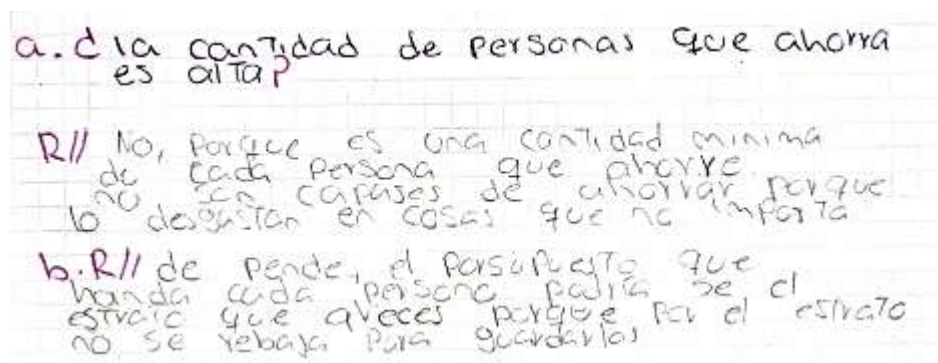 a. ¿la cantidad de personas que ahorra
es alta?
R// No, porque es una cantidad minima
de cada persona que ahorre.
no son capases de ahorrar porque
lo desgastan en cosas que no importa
b. R// de pende, el porsupuesto que
manda cada persona podria se el
estrato que aveces porque por el estrato
no se rebaja para guardarlas